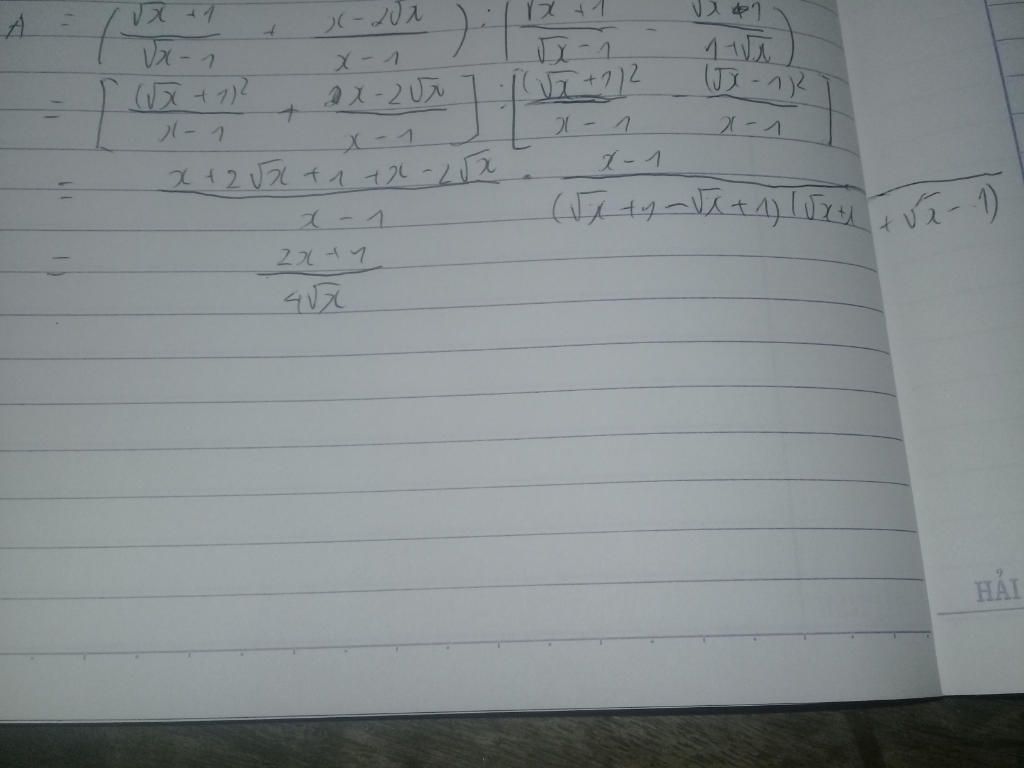 A = ( (√x + 1)/(√x - 1) + (x - 2√x)/(x - 1) ) : ( (√x + 1)/(√x - 1) - (√x - 1)/(1 + √x) )
= [ (√x + 1)²/(x - 1) + (x - 2√x)/(x - 1) ] : [ (√x + 1)²/(x - 1) - (√x - 1)²/(x - 1) ]
= (x + 2√x + 1 + x - 2√x)/(x - 1) . (x - 1)/((√x + 1 - √x + 1)(√x + 1 + √x - 1))
= (2x + 1)/(4√x)
HẢI